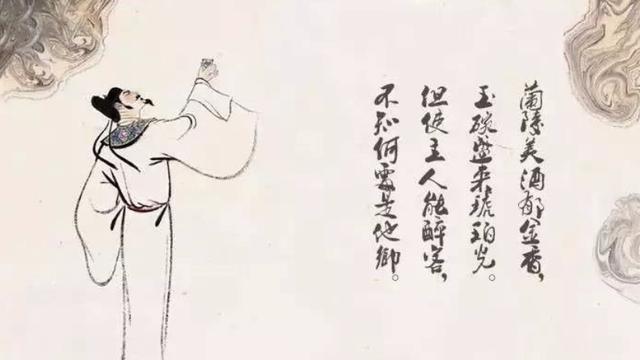 蘭陵美酒郁金香，
玉碗盛来琥珀光。
但使主人能醉客，
不知何處是他鄉。